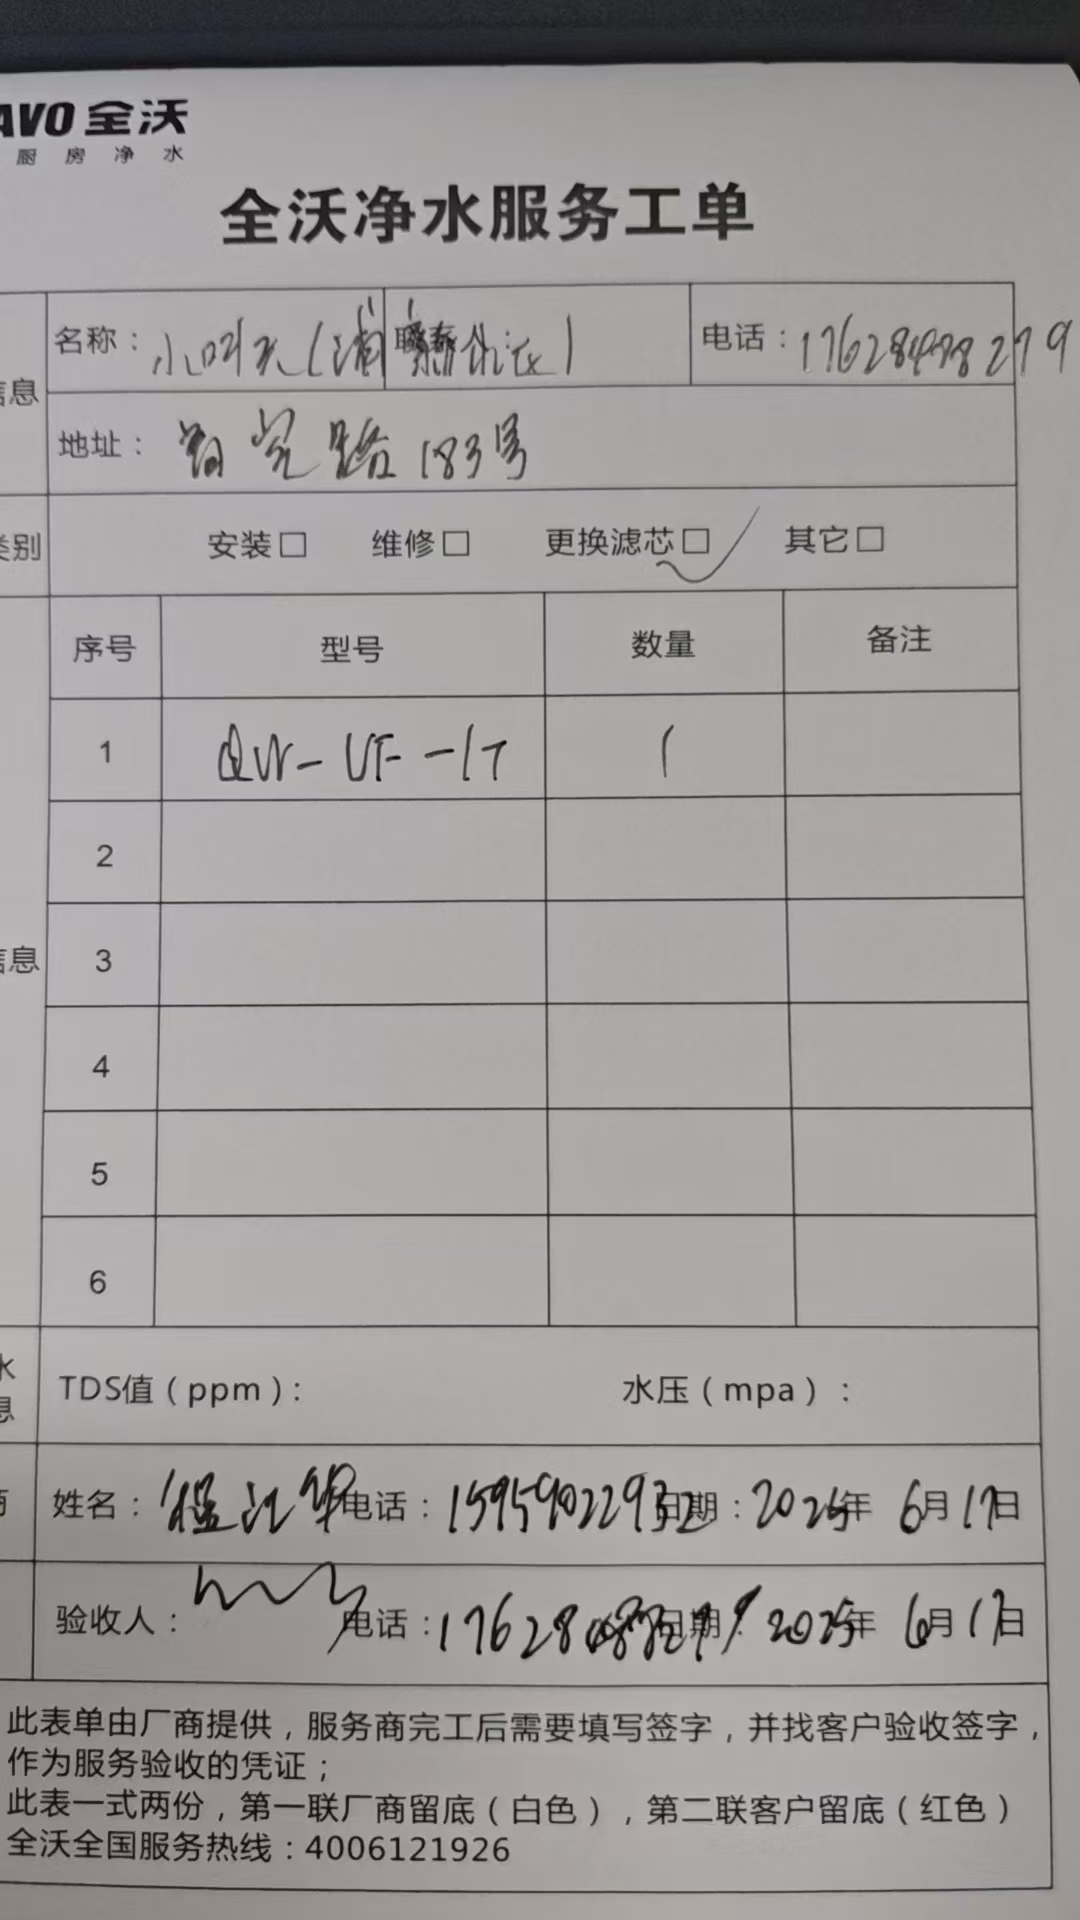 AVO 全沃
厨房净水
全沃净水服务工单
信息
名称：小叫天(浦 联系 化店)
电话：17628498279
地址： 路183号
类别
安装□ 维修□ 更换滤芯□✓ 其它□
序号 型号 数量 备注
1 QW-UF-1T 1
2
信息 3
4
5
6
水
息
TDS值（ppm）： 水压（mpa）：
商 姓名：程江华 电话：15959022932 日期：2025年6月17日
验收人： 电话： 日期：2025年6月17日
此表单由厂商提供，服务商完工后需要填写签字，并找客户验收签字，
作为服务验收的凭证；
此表一式两份，第一联厂商留底（白色），第二联客户留底（红色）
全沃全国服务热线：4006121926